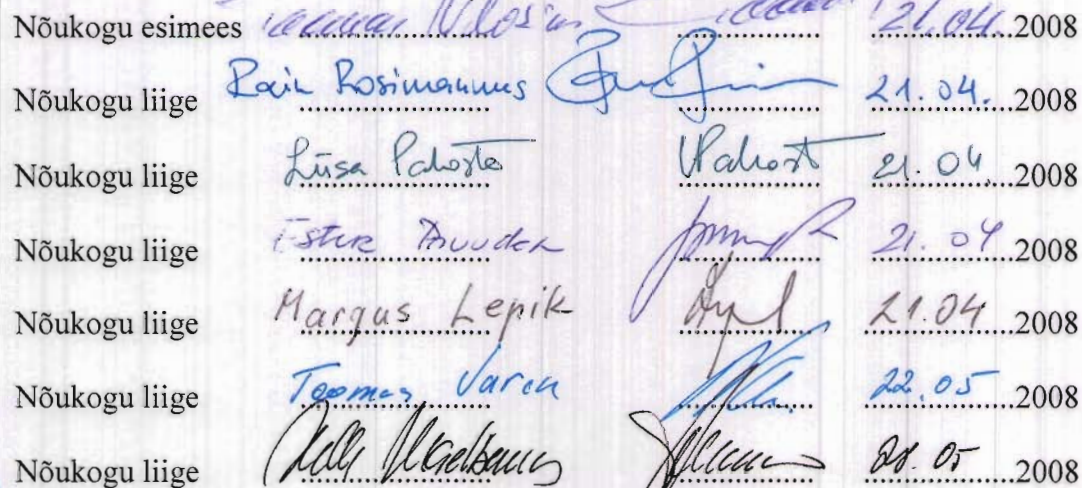 Nõukogu esimees 21.04.2008
Nõukogu liige Rain Rosimannus 21.04.2008
Nõukogu liige Liisa Pakosta 21.04.2008
Nõukogu liige Ester Tuuder 21.04 2008
Nõukogu liige Margus Lepik 21.04 2008
Nõukogu liige Toomas Varek 22.05 2008
Nõukogu liige 2008